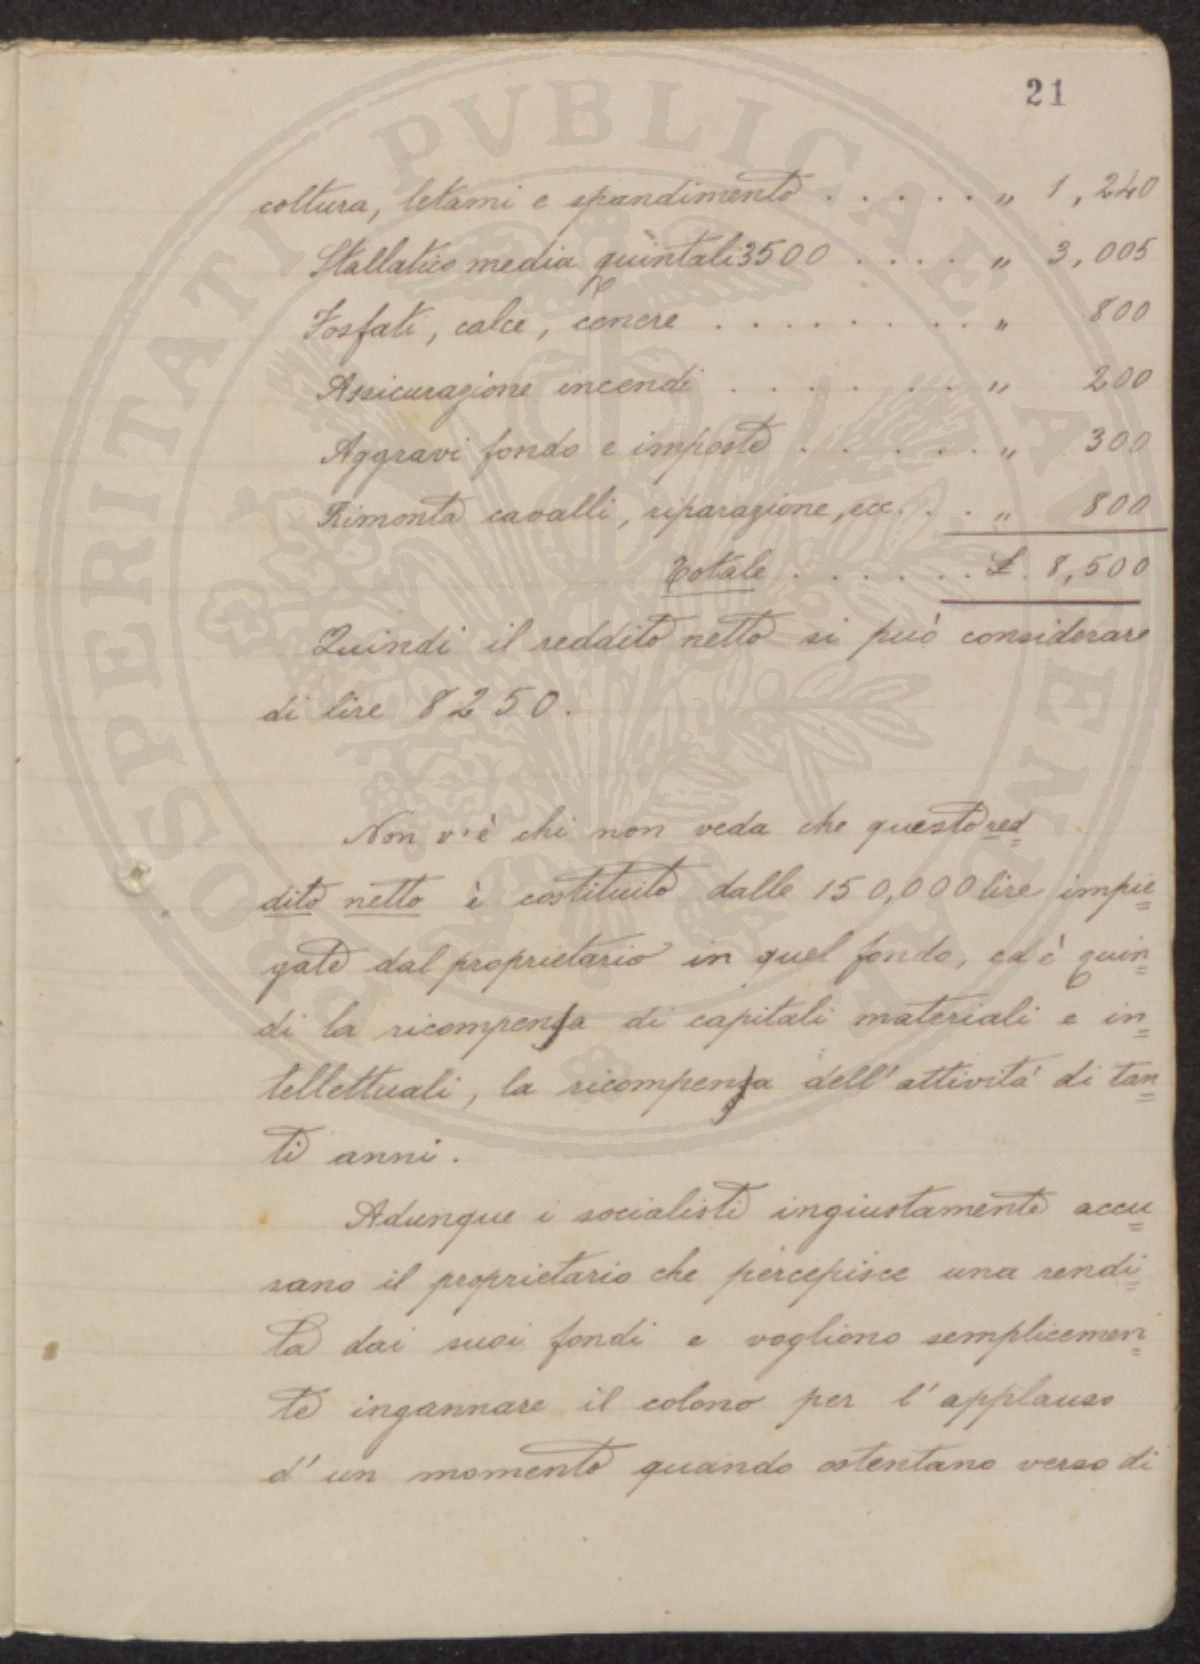 21
coltura, letami e spandimento . . . . . . „ 1,240
Stallatico media quintali 3500 . . . . „ 3,005
Fosfati, calce, cenere . . . . . . . . . „ 800
Assicurazione incendi . . . . . . . . „ 200
Aggravi fondo e imposte . . . . . . „ 300
Rimonta cavalli, riparazione, ecc. . . . „ 800
Totale . . . . . . . £. 8,500
Quindi il reddito netto si può considerare
di lire 8250.
Non v'è chi non veda che questo red=
dito netto è costituito dalle 150,000 lire impie=
gate dal proprietario in quel fondo, ed è quin=
di la ricompensa di capitali materiali e in=
tellettuali, la ricompensa dell'attività di tan=
ti anni.
Adunque i socialisti ingiustamente accu=
sano il proprietario che percepisce una rendi=
ta dai suoi fondi e vogliono semplicemen=
te ingannare il colono per l'applauso
d'un momento quando ostentano verso di
PROSPERITATI PVBLICAE AVGENDAE